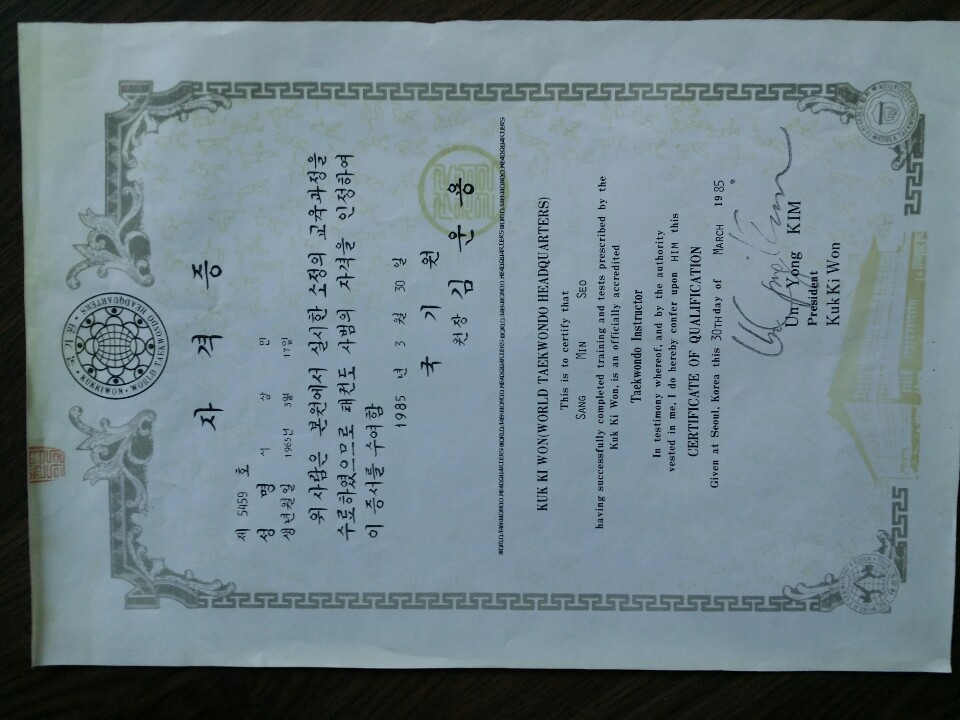 KUKKIWON · WORLD TAEKWONDO HEADQUARTERS ·
자 격 증
제 5459 호
성 명 서 상 민
생년월일 1965년 3월 17일
위 사람은 본원에서 실시한 소정의 교육과정을
수료하였으므로 태권도 사범의 자격을 인정하여
이 증서를 수여함
1985 년 3 월 30 일
국 기 원
원장 김 운 용
KUK KI WON(WORLD TAEKWONDO HEADQUARTERS)
This is to certify that
SANG MIN SEO
having successfully completed training and tests prescribed by the
Kuk Ki Won, is an officially accredited
Taekwondo Instructor
In testimony whereof, and by the authority
vested in me, I do hereby confer upon HIM this
CERTIFICATE OF QUALIFICATION
Given at Seoul, Korea this 30TH day of MARCH 1985 .
Un Yong KIM
President
Kuk Ki Won